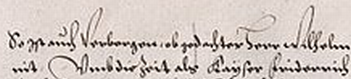 So ist auch Verborgen, ob gedachter Herr Wilhelm
nit, Umb die Zeit als Kayser Friderich